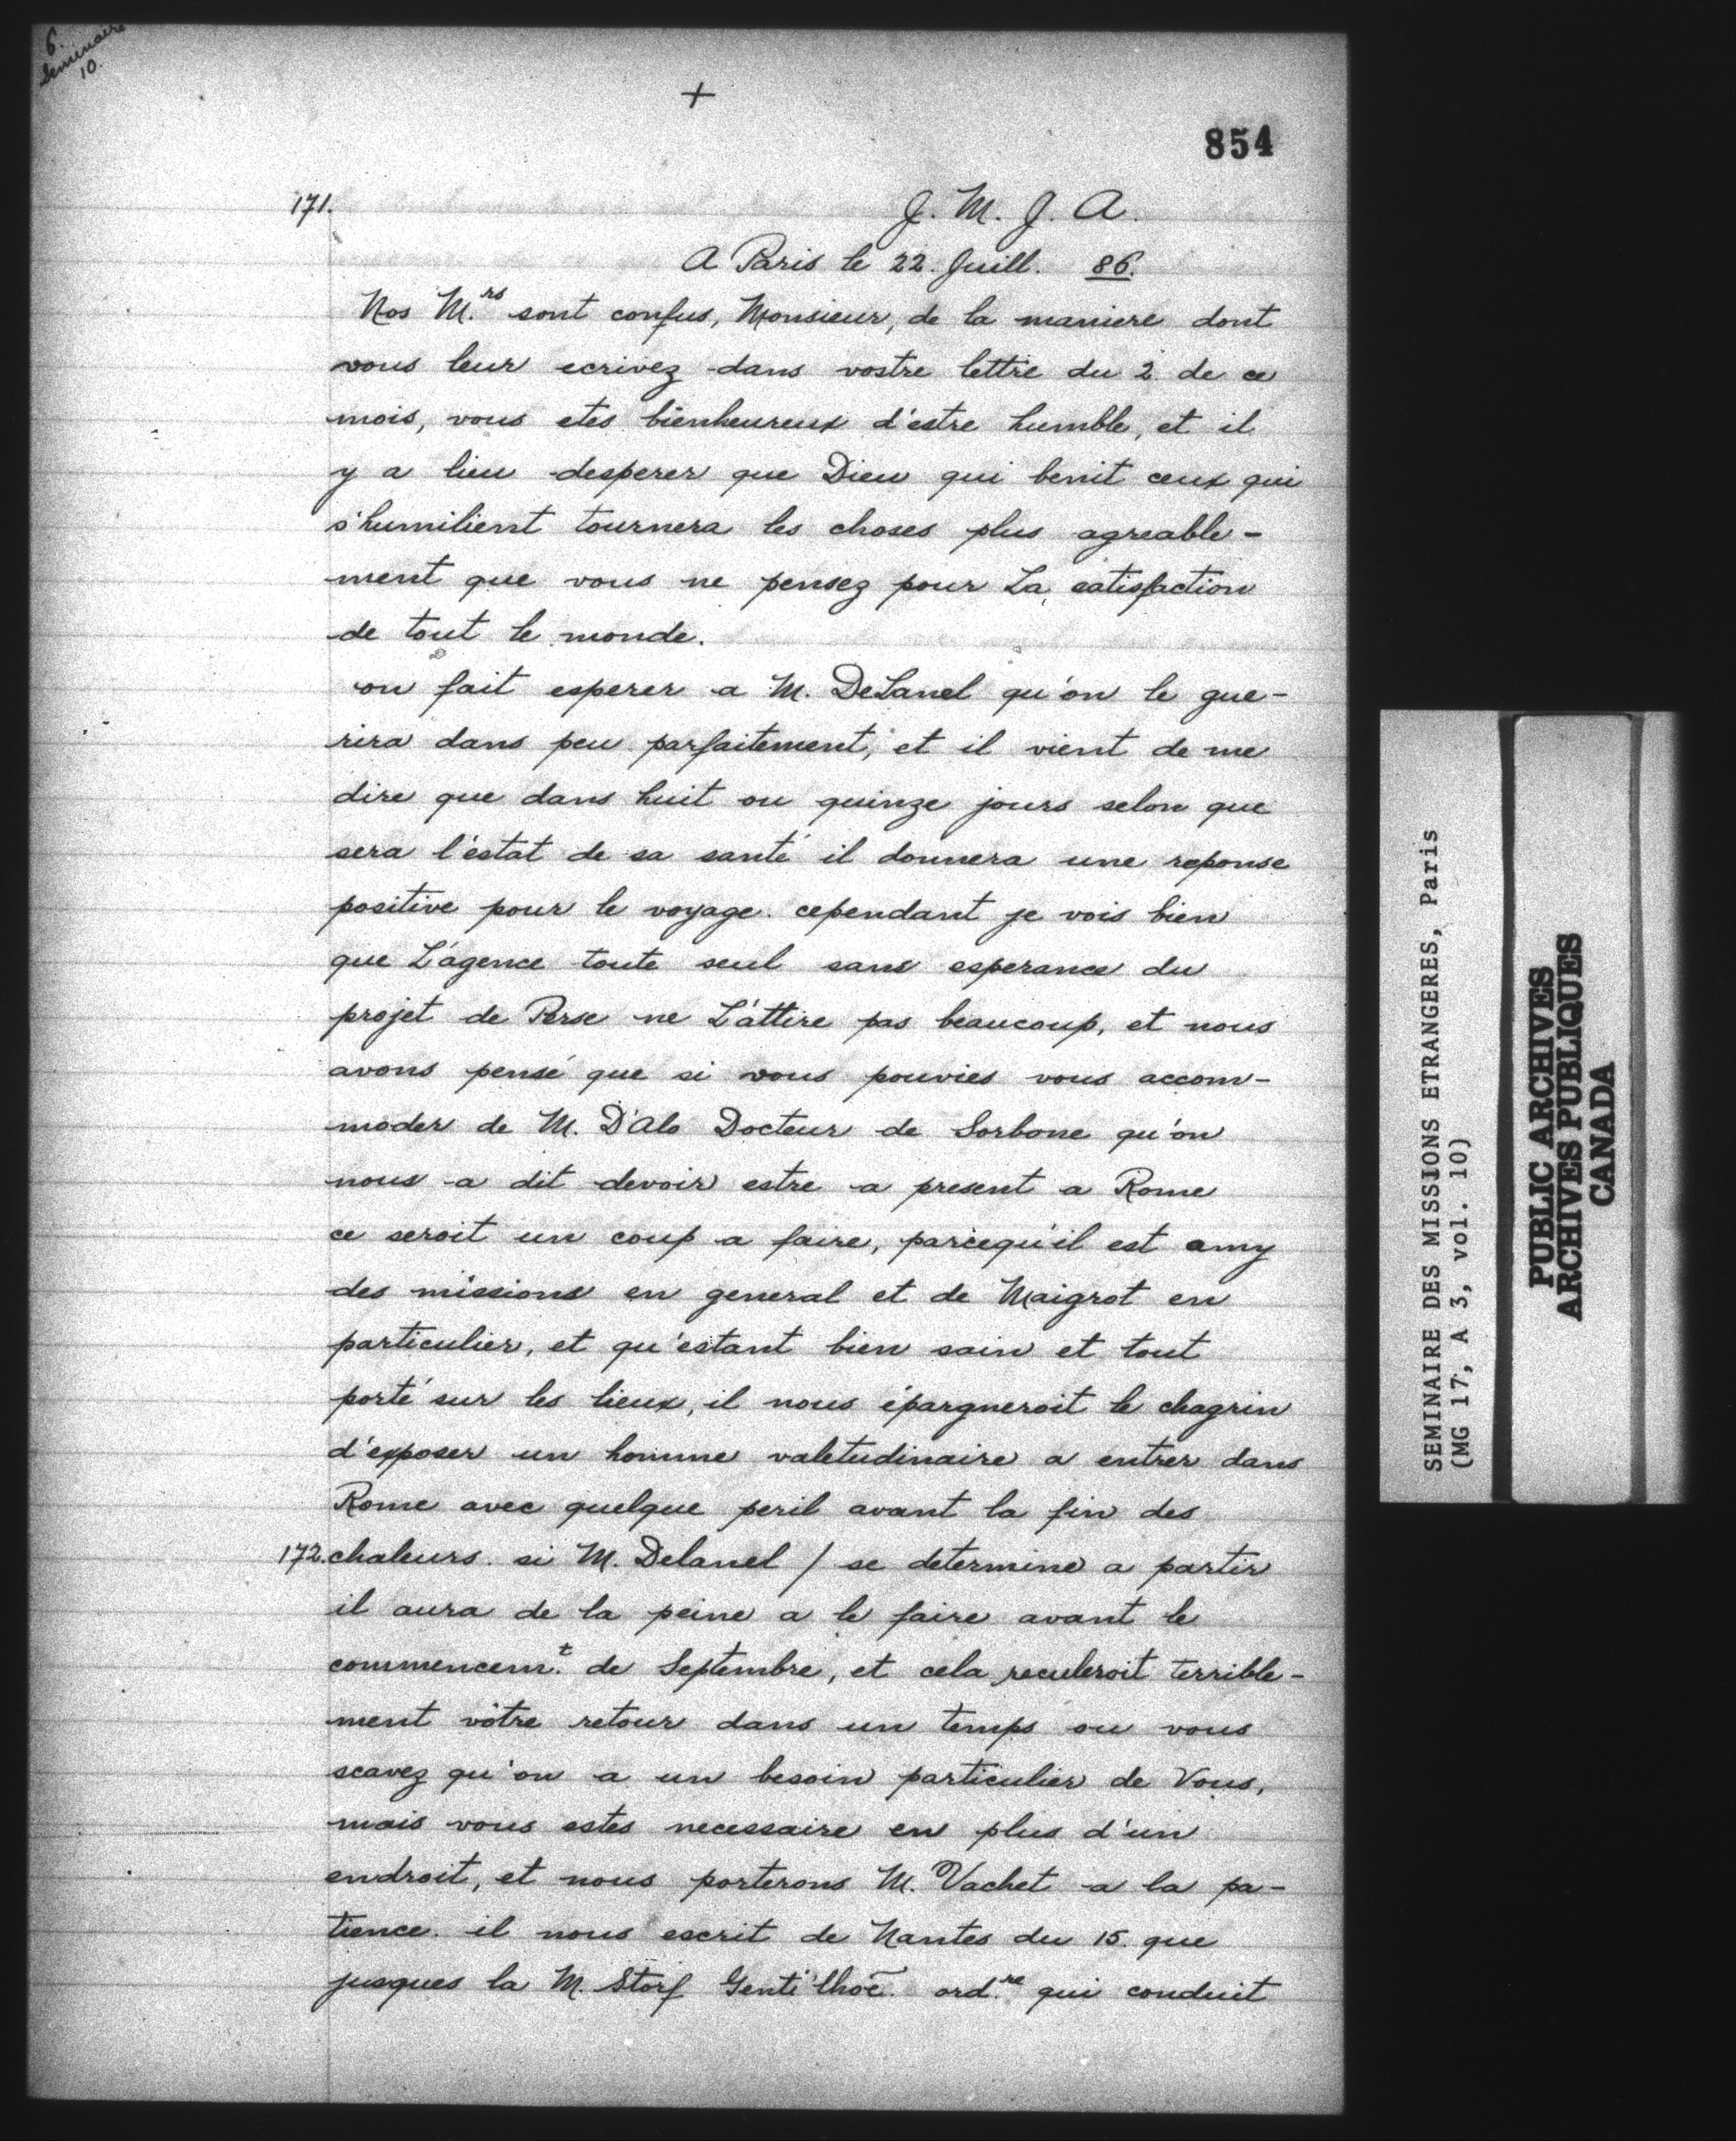 6.
Seminaire
10.
+
854
171.
J. M. J. A.
A Paris le 22. Juill. 86.
Nos M.rs sont confus, Monsieur, de la maniere dont
vous leur ecrivez dans vostre lettre du 2. de ce
mois, vous etes bienheureux d'estre humble, et il
y a lieu desperer que Dieu qui benit ceux qui
s'humilient tournera les choses plus agreable-
ment que vous ne pensez pour La satisfaction
de tout le monde.
on fait esperer a M. DeLanel qu'on le gue-
rira dans peu parfaitement, et il vient de me
dire que dans huit ou quinze jours selon que
sera l'éstat de sa santé il donnera une reponse
positive pour le voyage. cependant je vois bien
que L'agence toute seul sans esperance du
projet de Perse ne L'attire pas beaucoup, et nous
avons pensé que si vous pouvies vous accom-
moder de M. D'Alo Docteur de Sorbone qu'on
nous a dit devoir estre a present a Rome
ce seroit un coup a faire, parcequ'il est amy
des missions en general et de Maigrot en
particulier, et qu'estant bien sain et tout
porté sur les lieux, il nous épargneroit le chagrin
d'exposer un homme valetudinaire a entrer dans
Rome avec quelque peril avant la fin des
172. chaleurs. si M. Delanel / se determine a partir
il aura de la peine a le faire avant le
commencem.t de Septembre, et cela reculeroit terrible-
ment vôtre retour dans un temps ou vous
scavez qu'on a un besoin particulier de Vous,
mais vous estes necessaire en plus d'un
endroit, et nous porterons M. Vachet a la pa-
tience. il nous escrit de Nantes du 15. que
jusques la M. Storf Genti'lhoē. ord.re qui conduit
SEMINAIRE DES MISSIONS ETRANGERES, Paris
(MG 17, A 3, vol. 10)
PUBLIC ARCHIVES
ARCHIVES PUBLIQUES
CANADA